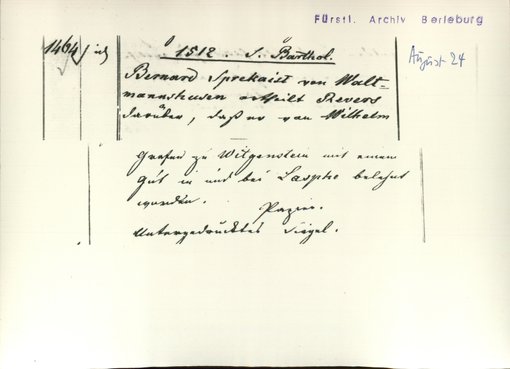 Fürstl. Archiv Berleburg
1464
1512. S. Barthol.
August 24
Bernard Sprekaist von Walt-
mannshusen ertheilt Revers
darüber, daß er von Wilhelm
Grafen zu Witgenstein mit einem
Gut in und bei Lasphe belehnt
worden. Papier.
Untergedrucktes Siegel.